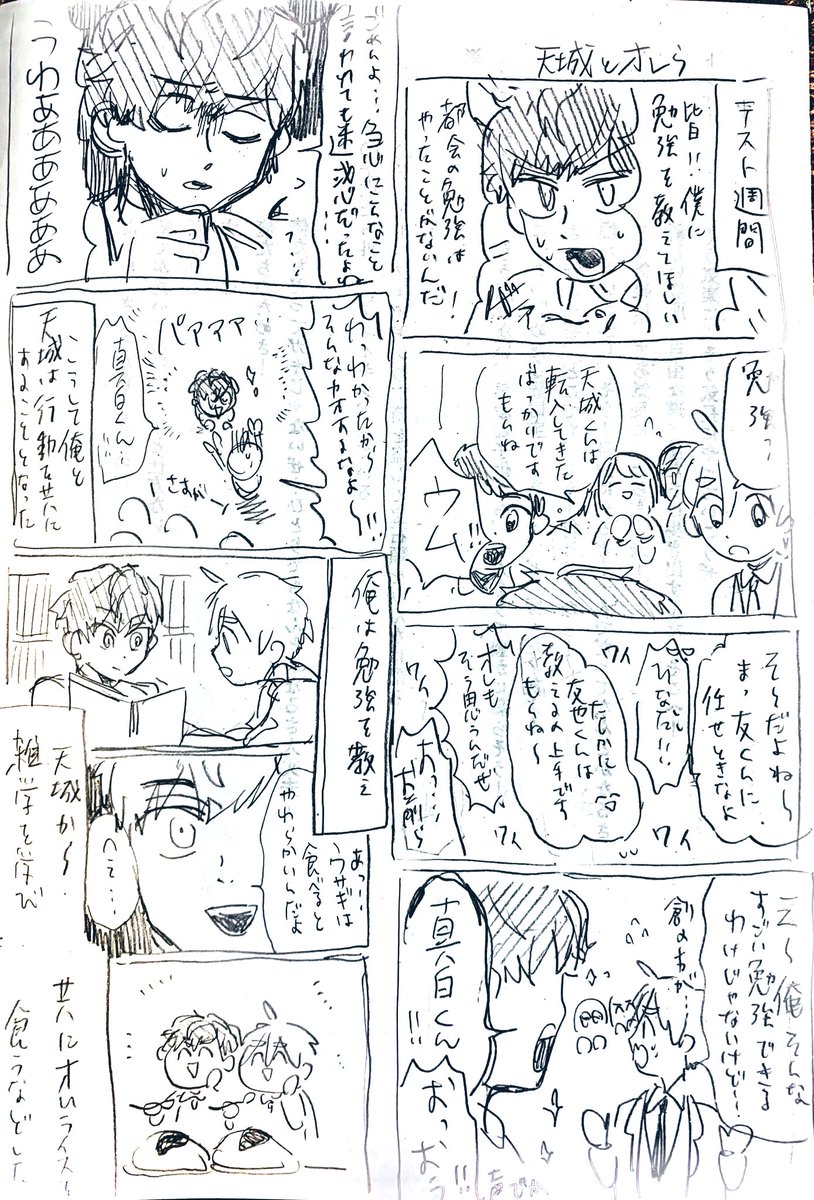 天城とオレら
テスト週間
皆!!僕に
勉強を教えてほしい
都会の勉強は
やったことがないんだ!
バァ
勉強っ
天城くんは
転入してきた
ばっかいです
もんね
ウム!!
そ〜だよね〜
まっ友くんに
任せときなよ
ひなた!!
ワイ
たしかに
友也くんは
教えるの上手です
もんね〜
オレも
そう思うんだぜ
ワイ
ワイ
おっ…
お前ら
え〜俺そんな
すごい勉強できる
わけじゃないけど!
創のが…
真白くん
!!
おっおう!!
声でか
ごめんよ…
急にこんなこと
言われても迷惑だったよね
っ…
うわああああああ
わっわかったから
そんなカオするなよ〜!!
パアアア
真白くん…
さすがー
こうして俺と
天城は行動を共に
することとなった
俺は勉強を教え
あっ…
ウサギは
食べると
やわらかいんだよ
へぇ…
天城から
雑学を学び
共にオムライスを
食うなどした